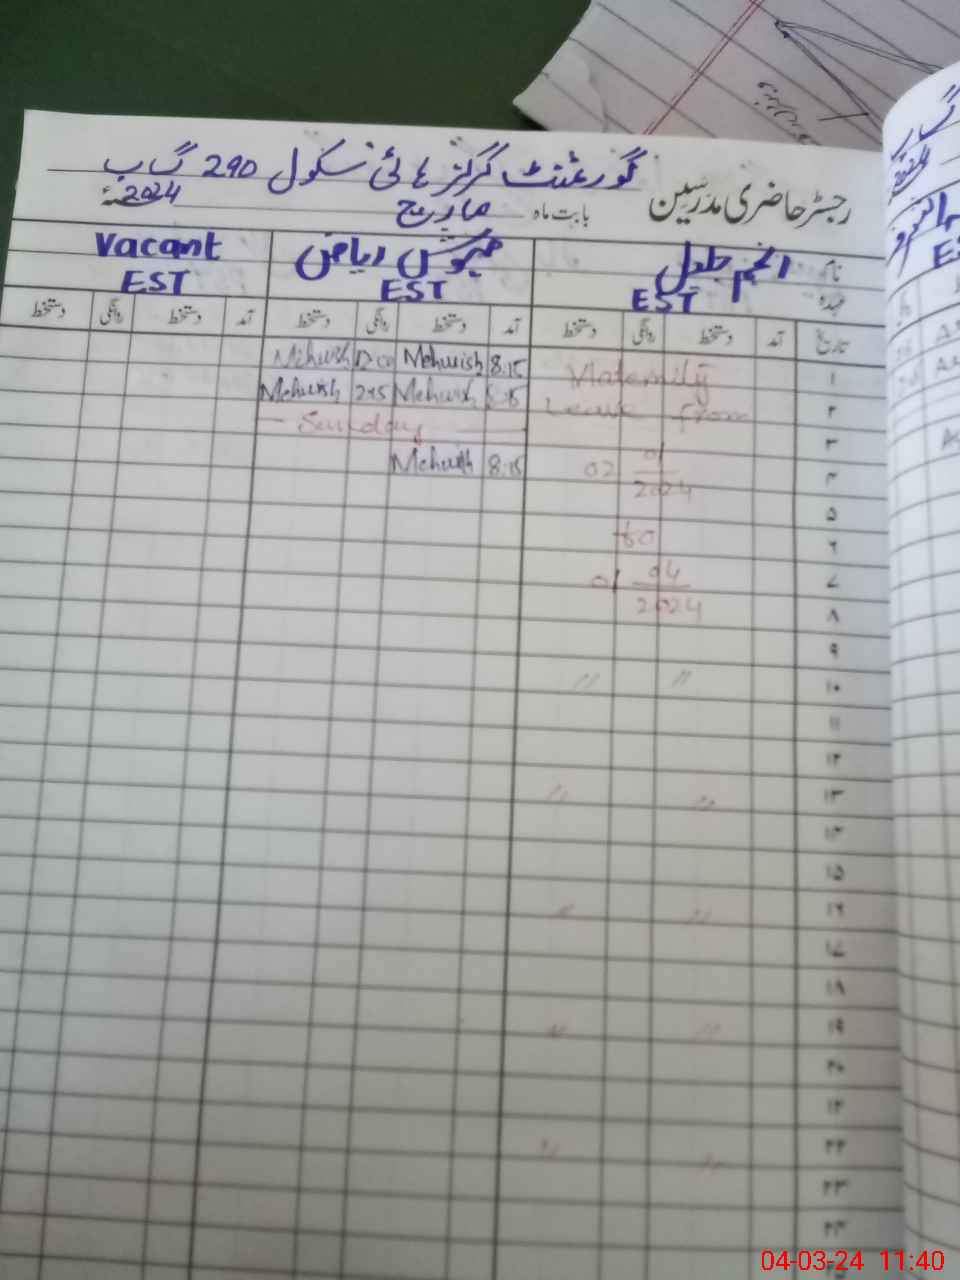 گورنمنٹ گرلز ہائی سکول 290 گ ب
رجسٹر حاضری مدرسین بابت ماہ مارچ 2024ء
نام انجم جلیل مہوش ریاض Vacant
عہدہ EST EST EST
تاریخ آمد دستخط روانگی دستخط آمد دستخط روانگی دستخط آمد دستخط روانگی دستخط
۱ Maternity 8:15 Mehwish 12:00 Mehwish
۲ Leave From Mehwish 2:45 Mehwish
۳ - Sunday
۴ 02 01/2024 8:15 Mehwish
۵
۶ to
۷ 01 04/2024
۸
۹
۱۰ " "
۱۱
۱۲
۱۳ " "
۱۴
۱۵
۱۶ " "
۱۷
۱۸
۱۹ " "
۲۰
۲۱
۲۲ " "
۲۳
۲۴
04-03-24 11:40